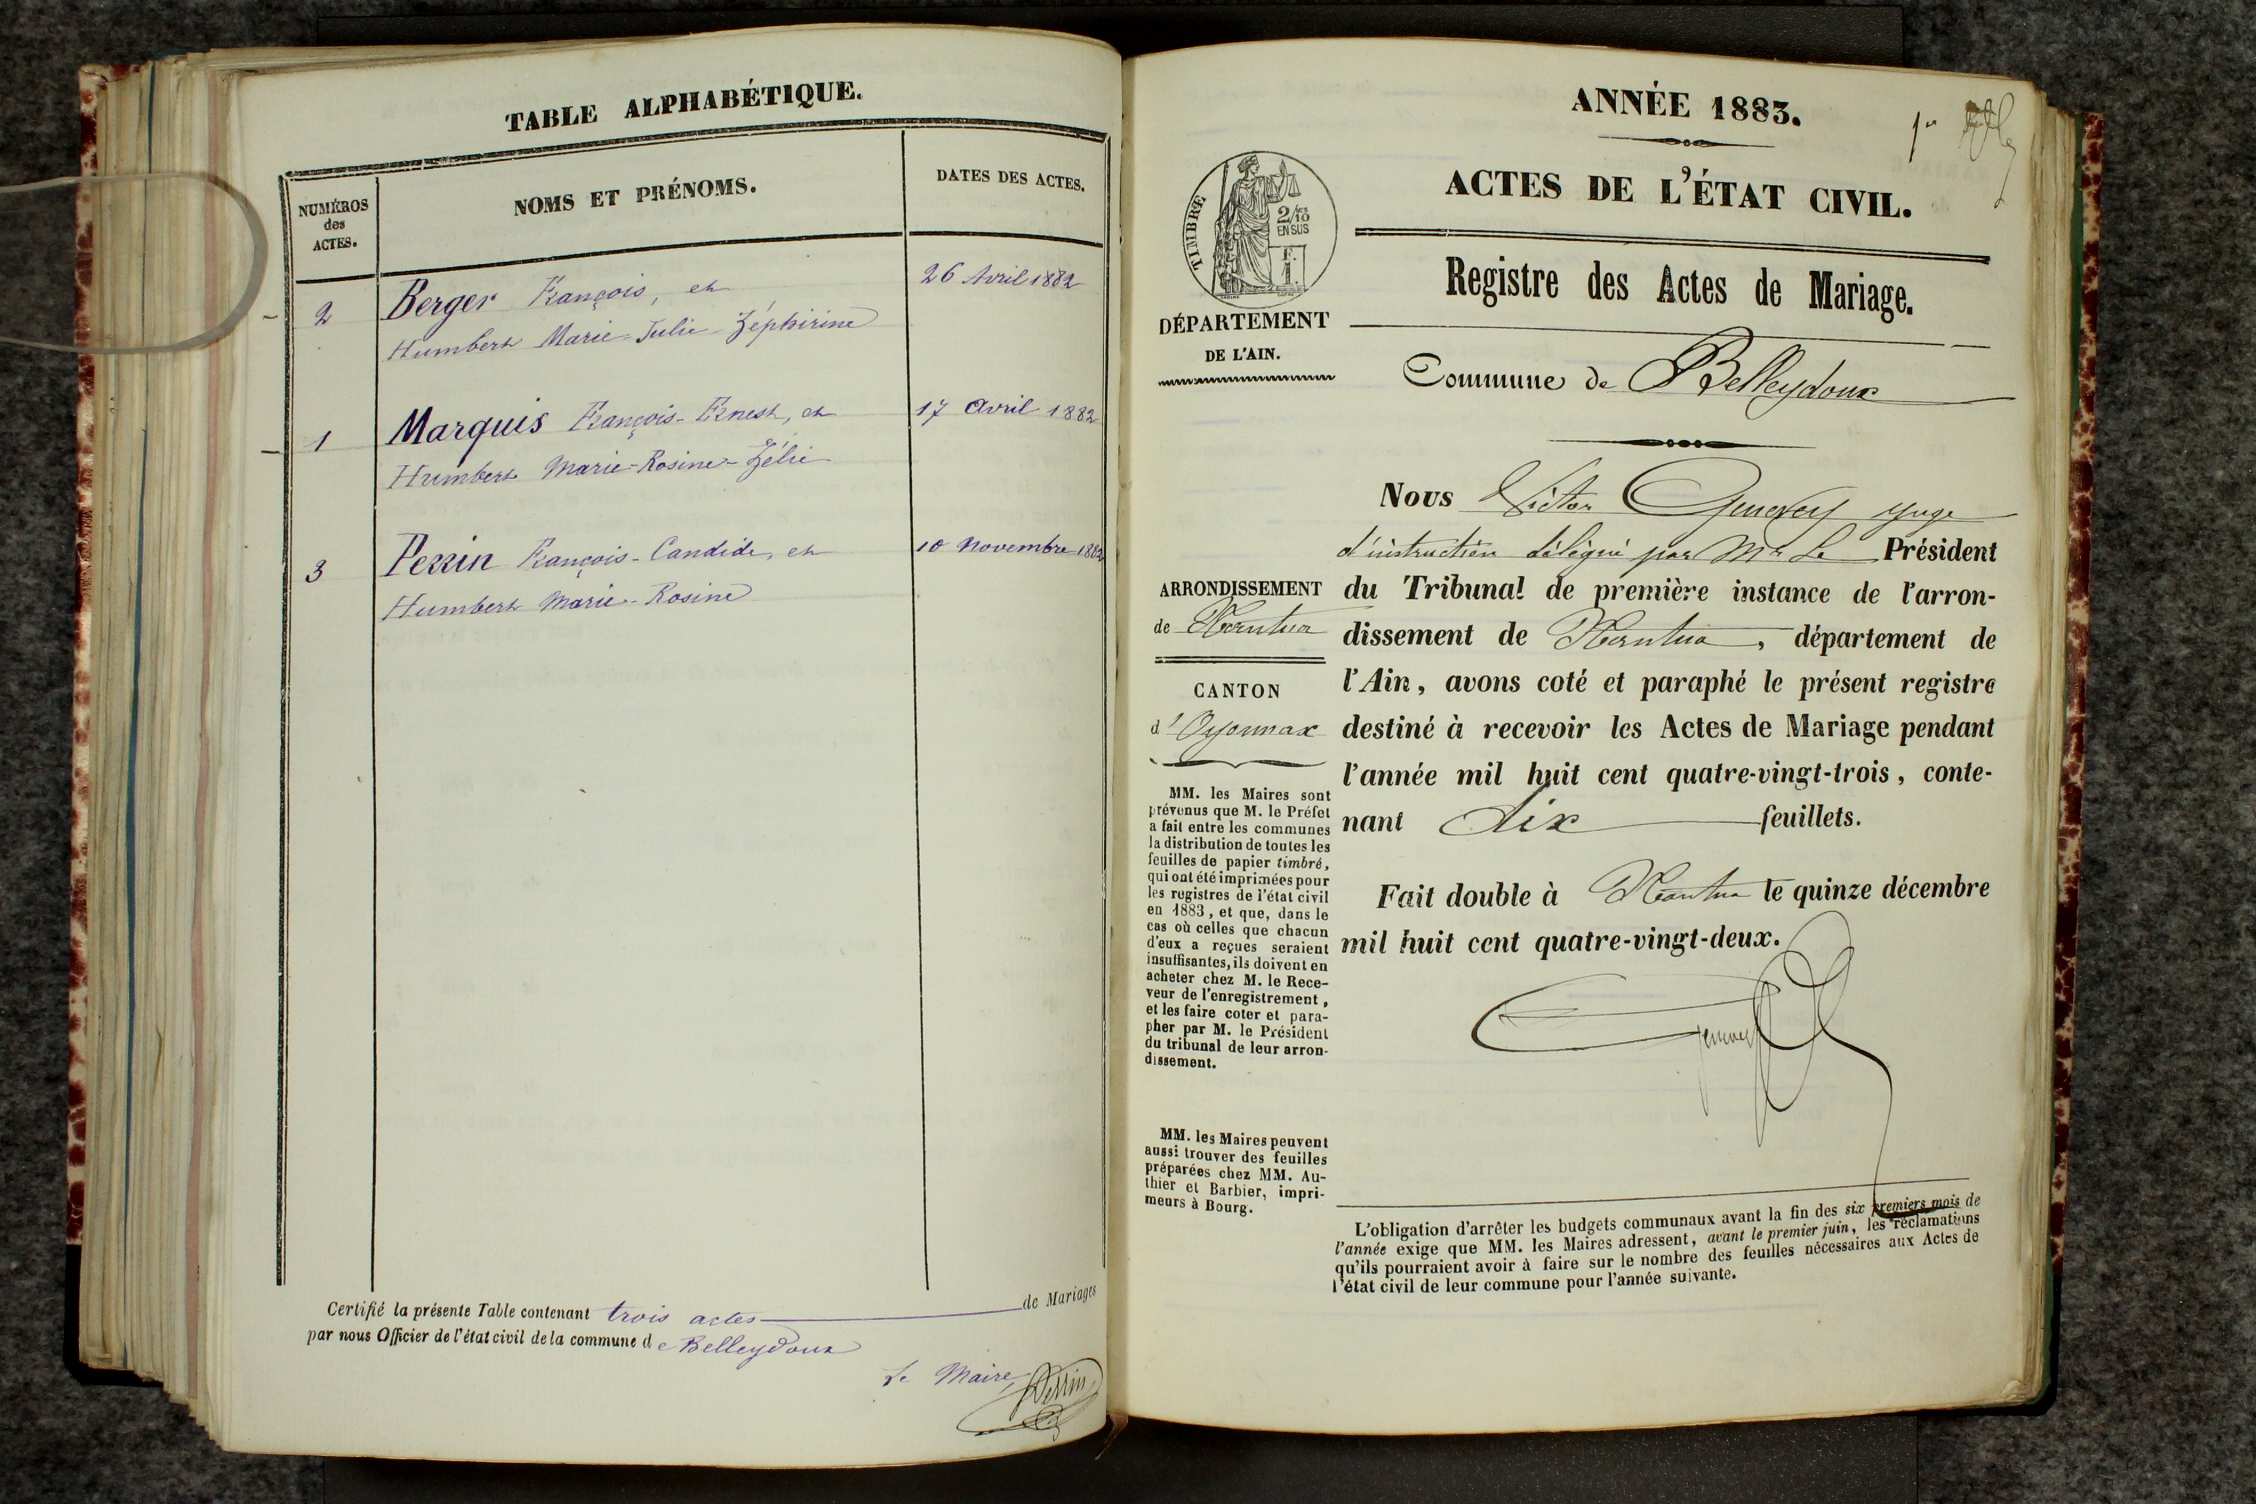 TABLE ALPHABÉTIQUE.
NUMÉROS
des
ACTES.
NOMS ET PRÉNOMS.
DATES DES ACTES.
2 Berger François, et 26 Avril 1882
Humbert Marie-Julie-Zéphirine
1 Marquis François-Ernest, et 17 avril 1882
Humbert Marie-Rosine-Zélie
3 Perrin François-Candide, et 10 novembre 1882
Humbert Marie-Rosine
Certifié la présente Table contenant trois actes de Mariages
par nous Officier de l'état civil de la commune de Belleydoux
Le Maire,
Perrin
ANNÉE 1883.
1er
ACTES DE L'ÉTAT CIVIL.
TIMBRE
2/10es
EN SUS
F.
1.
DÉPARTEMENT
DE L'AIN.
Registre des Actes de Mariage.
Commune de Belleydoux
ARRONDISSEMENT
de Nantua
CANTON
d'Oyonnax
MM. les Maires sont
prévenus que M. le Préfet
a fait entre les communes
la distribution de toutes les
feuilles de papier timbré,
qui ont été imprimées pour
les registres de l'état civil
en 1883, et que, dans le
cas où celles que chacun
d'eux a reçues seraient
insuffisantes, ils doivent en
acheter chez M. le Rece-
veur de l'enregistrement,
et les faire coter et para-
pher par M. le Président
du tribunal de leur arron-
dissement.
MM. les Maires peuvent
aussi trouver des feuilles
préparées chez MM. Au-
thier et Barbier, impri-
meurs à Bourg.
Nous Victor Genevey juge
d'instruction délégué par Mr Le Président
du Tribunal de première instance de l'arron-
dissement de Nantua, département de
l'Ain, avons coté et paraphé le présent registre
destiné à recevoir les Actes de Mariage pendant
l'année mil huit cent quatre-vingt-trois, conte-
nant dix feuillets.
Fait double à Nantua le quinze décembre
mil huit cent quatre-vingt-deux.
Genevey
L'obligation d'arrêter les budgets communaux avant la fin des six premiers mois de
l'année exige que MM. les Maires adressent, avant le premier juin, les réclamations
qu'ils pourraient avoir à faire sur le nombre des feuilles nécessaires aux Actes de
l'état civil de leur commune pour l'année suivante.